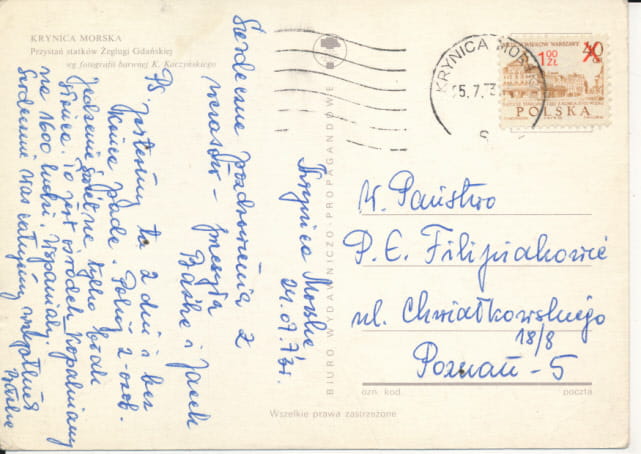 KRYNICA MORSKA
Przystań statków Żeglugi Gdańskiej
wg fotografii barwnej K. Kaczyńskiego
Serdeczne pozdrowienia z
wczasów - przesyła
Baśka i Jacek
PS. Jesteśmy tu 2 dni i bez
końca pada. Pokój 2-osob.
jedzenie świetne tylko brak
słońca. To jest ośrodek Kopalniany
na 1600 ludzi. Wspaniały.
Serdecznie Was całujemy
Baśka
Krynica Morska
BIURO WYDAWNICZO-PROPAGANDOWE
KRYNICA MORSKA
5.7.73
WIEKÓW WARSZAWY
40
1,00
ZŁ
POLSKA
W. Państwo
P. E. Filipiakowie
ul. Chwiałkowskiego
18/8
Poznań - 5
ozn. kod.
poczta
Wszelkie prawa zastrzeżone